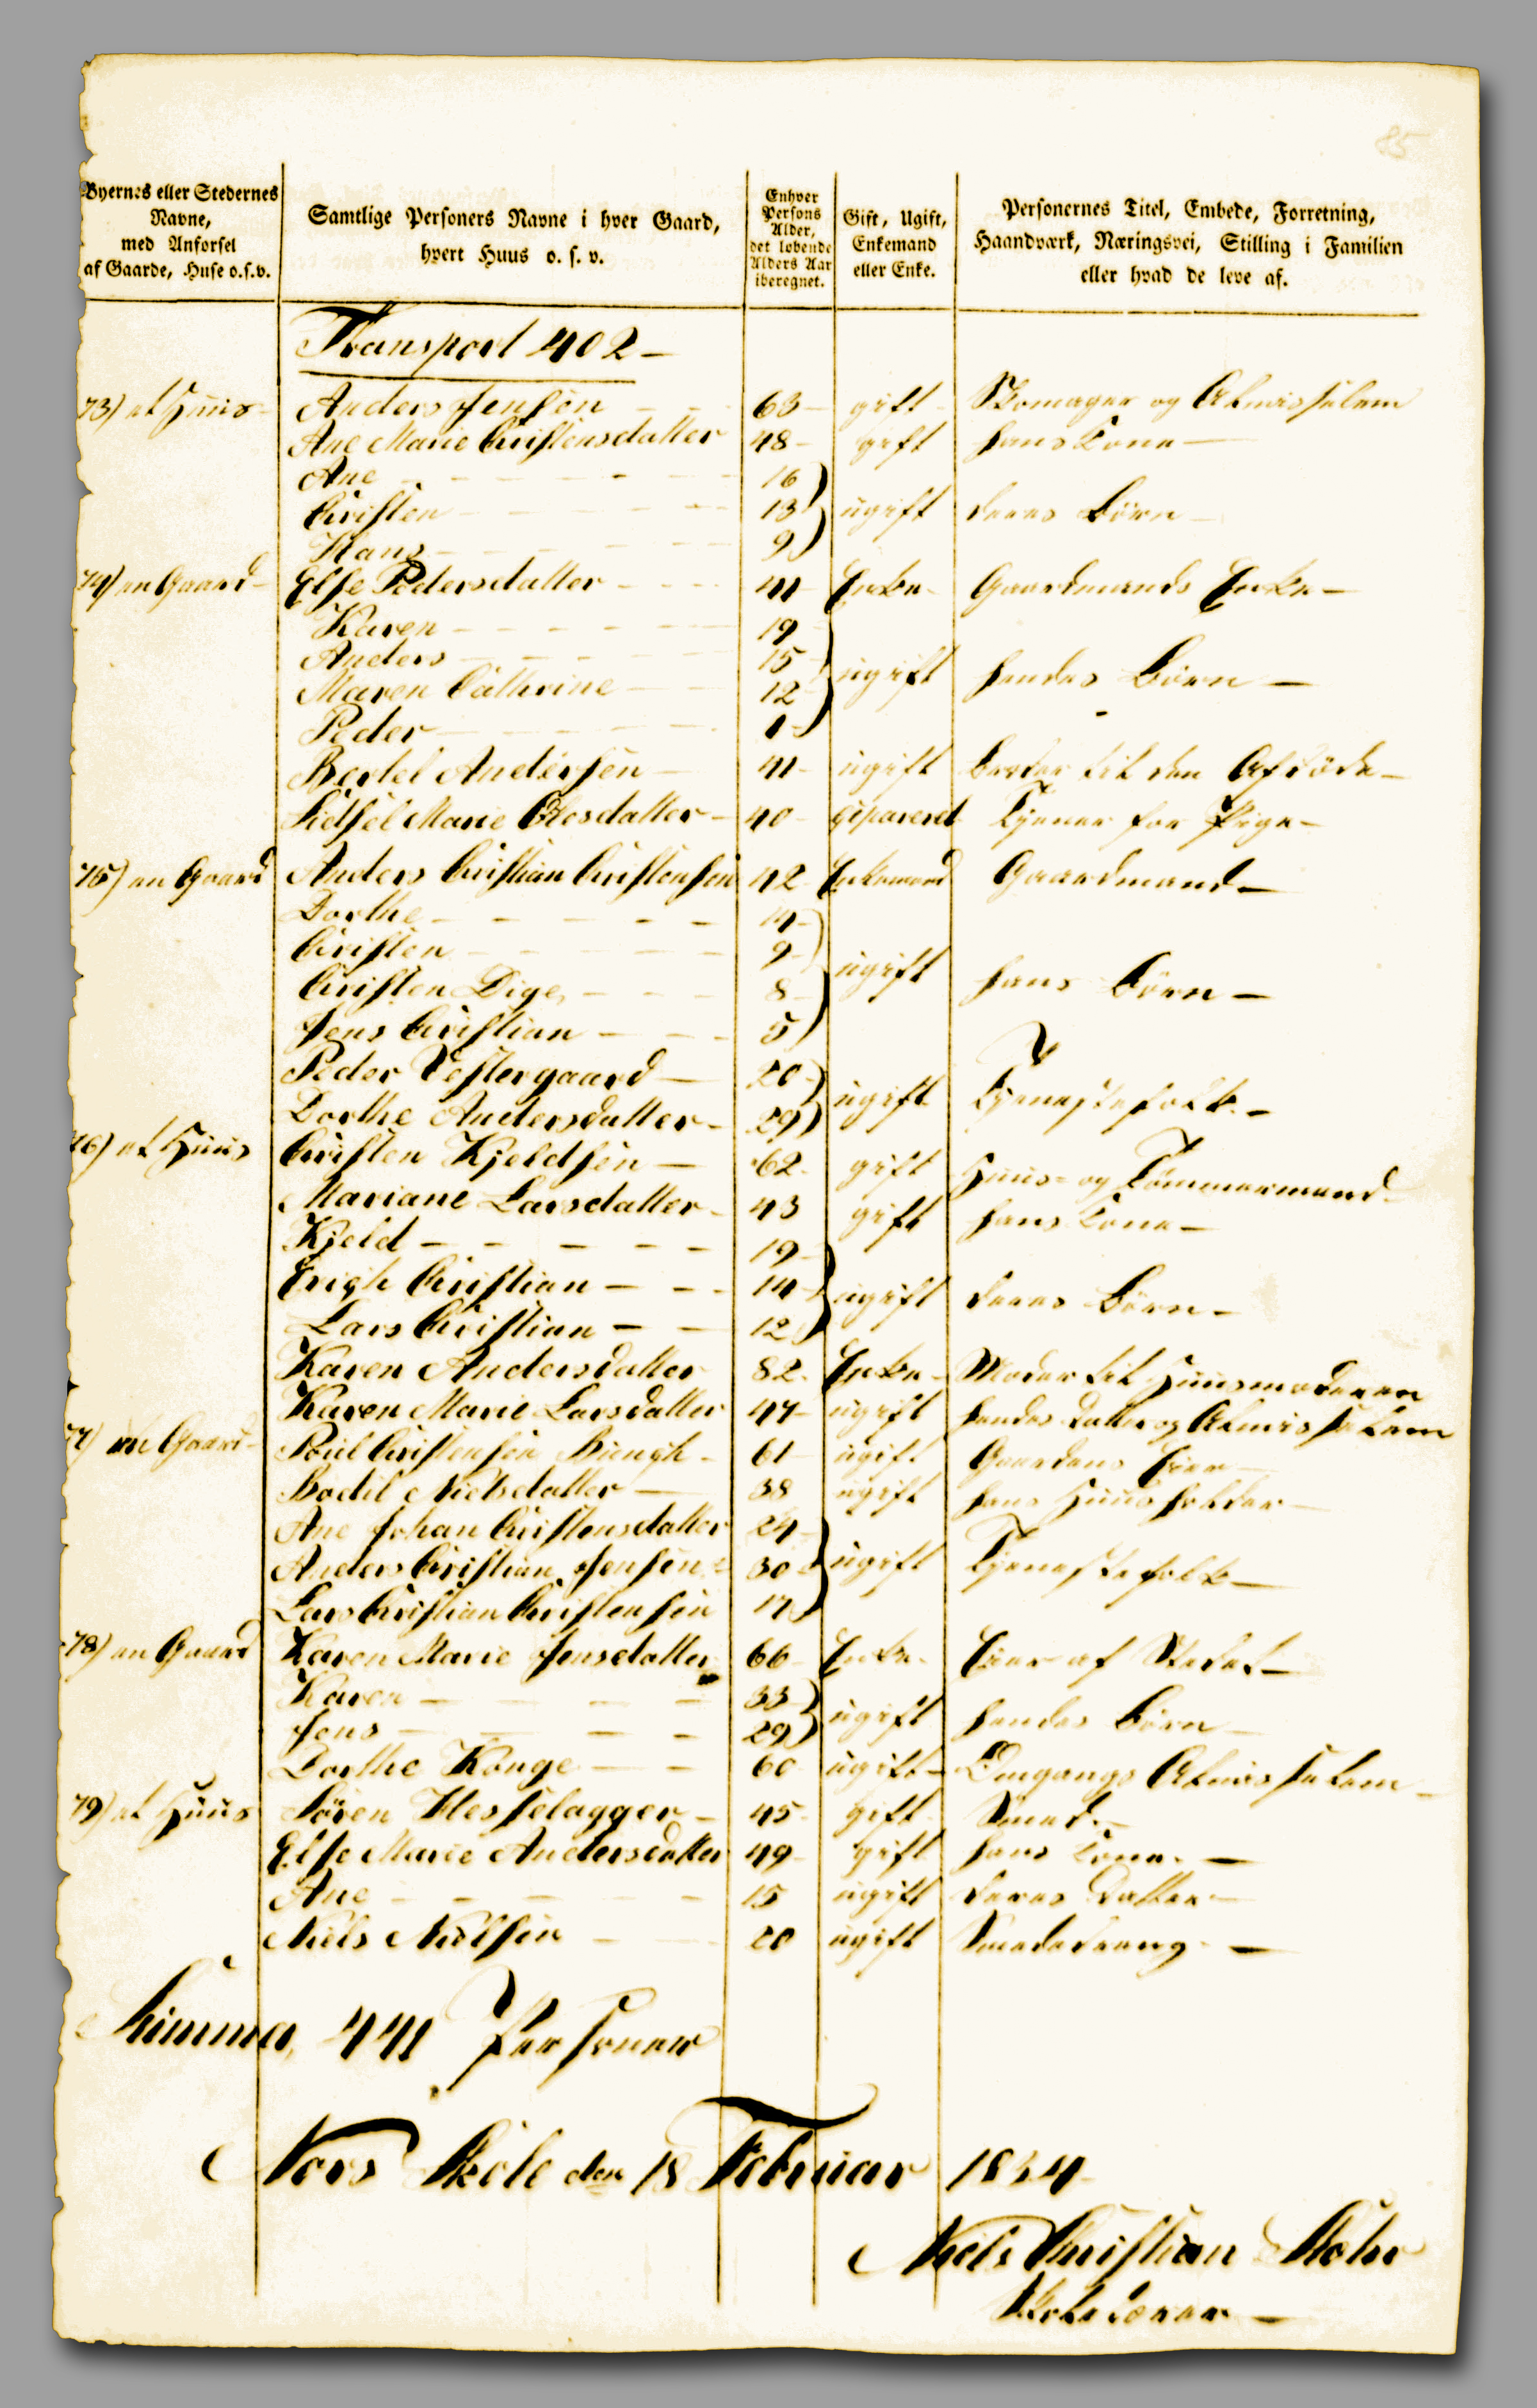 85
Byernes eller Stedernes Navne, med Anførsel af Gaarde, Huse o.s.v.
Samtlige Personers Navne i hver Gaard, hvert Huus o. s. v.
Enhver Persons Alder, det løbende Alders Aar iberegnet.
Gift, Ugift, Enkemand eller Enke.
Personernes Titel, Embede, Forretning, Haandværk, Næringsvei, Stilling i Familien eller hvad de leve af.
Transport 402 -
73) et Huus - Anders Jensen 63 - gift - Skomager og Almisselem
Ane Marie Christensdatter 48 - gift hans Kone -
Ane 16
Christen 13 ugift deres Børn -
Hans 9
74) en Gaard - Else Pedersdatter 41 Enke - Gaardmands Enke -
Karen 19
Anders 15 ugift hendes Børn -
Maren Cathrine 12
Peder 1
Bertel Andersen 41 - ugift Broder til den Afdøde -
Sidsel Marie Olesdatter - 40 - separeret Tjener for Pige -
75) en Gaard Anders Christian Christensen 42 Enkemand Gaardmand -
Dorthe 14
Christen 9 ugift hans Børn -
Christen Dige 8
Jens Christian 5
Peder Vestergaard 20 ugift Tjenestefolk -
Dorthe Andersdatter - 29
76) et Huus Christen Kjeldsen 62 - gift Huus- og Tømmermand
Mariane Larsdatter - 43 gift hans Kone -
Kjeld 19
Erigh Christian 14 ugift deres Børn -
Lars Christian 12
Karen Andersdatter 82 - Enke - Moder til Huusmoderen
Karen Marie Larsdatter 47 - ugift hendes Datter og Almisselem
77) en Gaard - Poul Christensen 61 ugift Gaardens Eier -
Bodil Nielsdatter 38 ugift hans Huusholder -
Ane Johan Christensdatter 24
Anders Christian Jensen 30 ugift Tjenestefolk -
Lars Christian Christensen 17
78) en Gaard Karen Marie Jensdatter 66 - Enke - Eier af Stedet -
Karen 33 ugift hendes Børn -
Jens 29
Dorthe Konge 60 ugift - Omgangs Almisselem -
79) et Huus Søren Hesselagger - 45 - gift Smed. -
Else Marie Andersdatter 49 gift hans Kone. -
Ane 15 ugift deres Datter -
Niels Nielsen 20 ugift Smededreng. -
Summa, 441 Personer
Nors Skole den 18 Februar 1834
Niels Christian
Skolelærer -